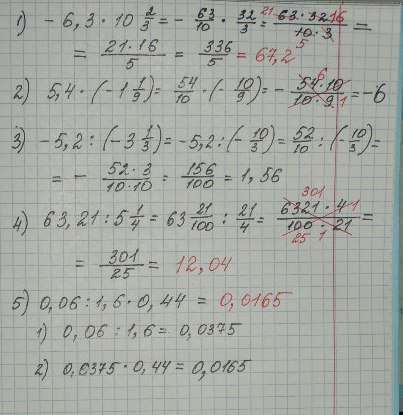 1) - 6,3 · 10 2/3 = - 63/10 · 32/3 = 21 63·32 16 / 10·3 5 =
= 21·16/5 = 336/5 = 67,2
2) 5,4 · (-1 1/9) = 54/10 · (- 10/9) = - 54·10 6 / 10·9 1 = -6
3) -5,2 : (-3 1/3) = -5,2 : (- 10/3) = 52/10 : (- 10/3) =
= - 52·3/10·10 = 156/100 = 1,56
4) 63,21 : 5 1/4 = 63 21/100 : 21/4 = 301 6321·4 1 / 100·21 25 1 =
= 301/25 = 12,04
5) 0,06 : 1,6 · 0,44 = 0,0165
1) 0,06 : 1,6 = 0,0375
2) 0,0375 · 0,44 = 0,0165